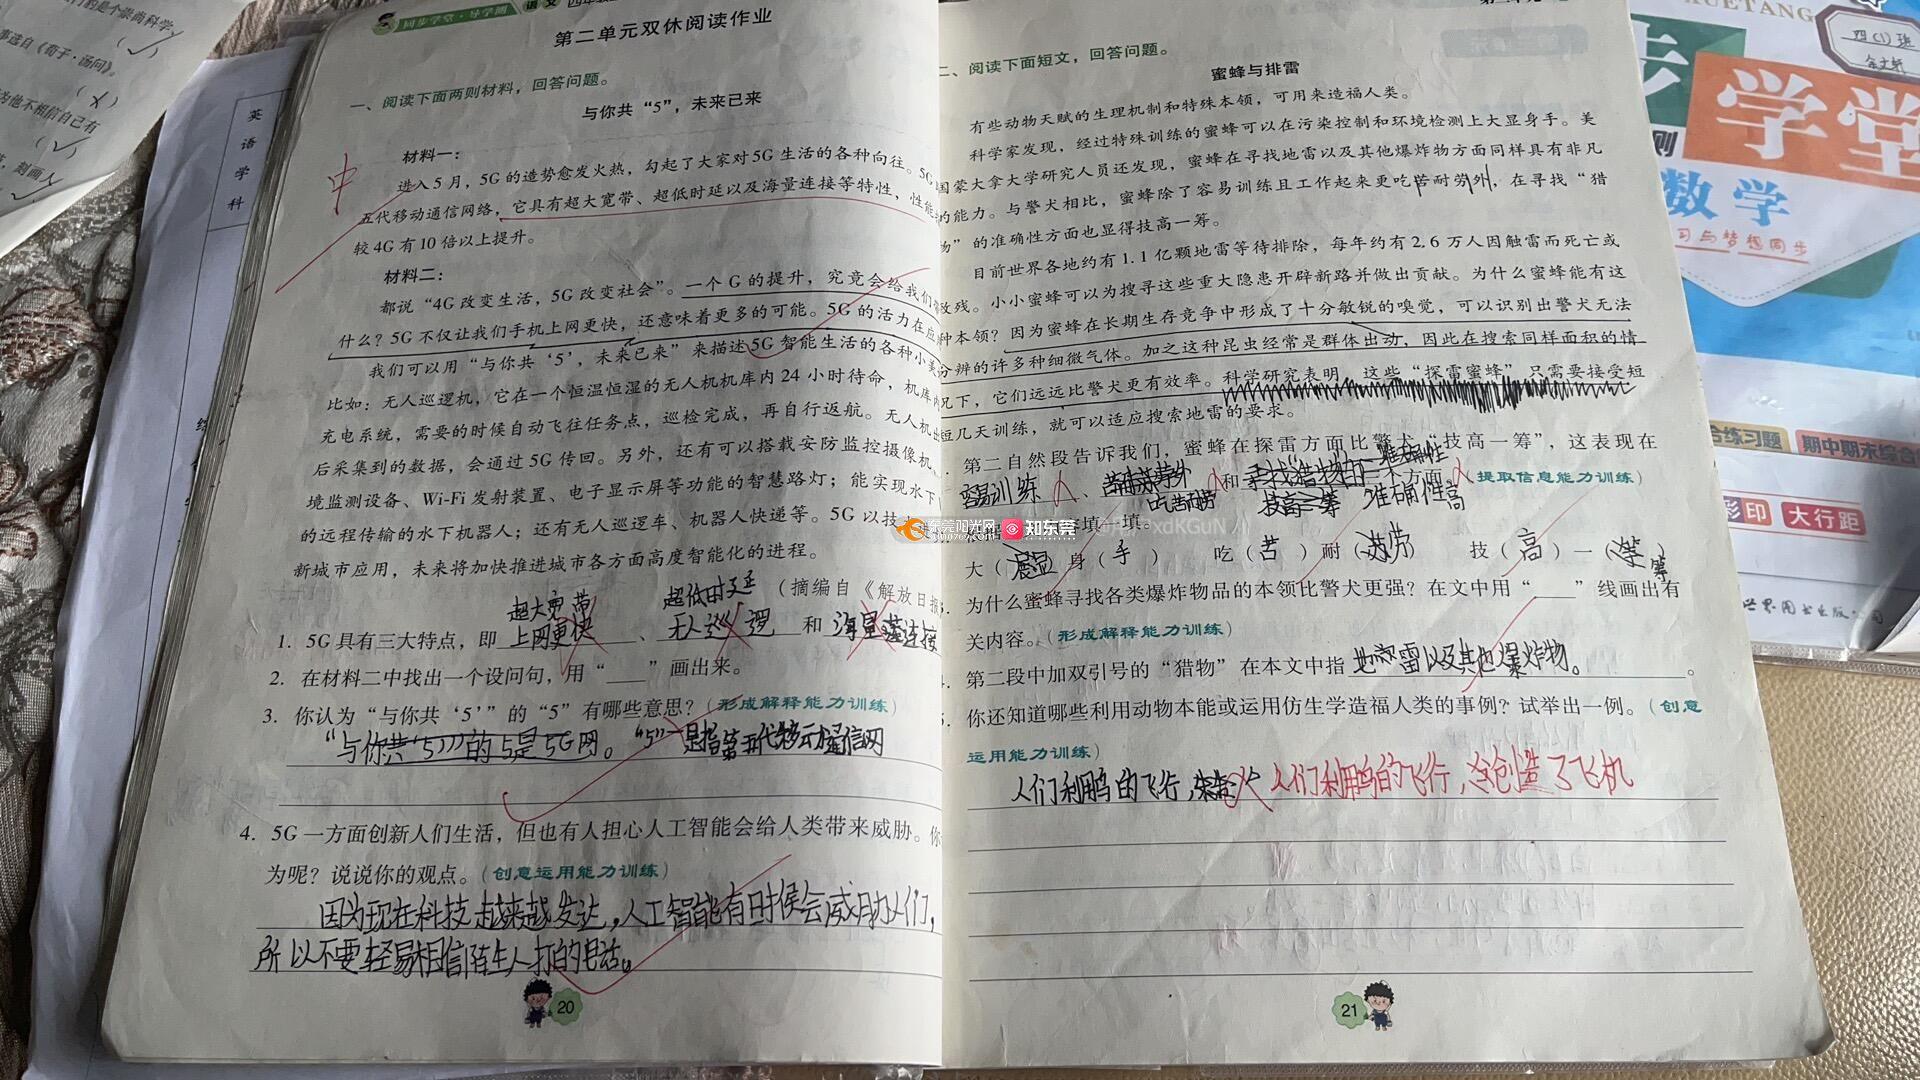 们的是个崇尚科学
(✓)
事选自《荀子·汤问》。
(×)
为他不相信自己有
(✓)
刻画人
英语学科
同步学堂·导学测 语文
第二单元双休阅读作业
一、阅读下面两则材料，回答问题。
与你共“5”，未来已来
中
材料一：
进入5月，5G的造势愈发火热，勾起了大家对5G生活的各种向往。5G
五代移动通信网络，它具有超大宽带、超低时延以及海量连接等特性，性能
较4G有10倍以上提升。
材料二：
都说“4G改变生活，5G改变社会”。一个G的提升，究竟会给我们
什么？5G不仅让我们手机上网更快，还意味着更多的可能。5G的活力在应
我们可以用“与你共‘5’，未来已来”来描述5G智能生活的各种小美
比如：无人巡逻机，它在一个恒温恒湿的无人机机库内24小时待命，机库内
充电系统，需要的时候自动飞往任务点，巡检完成，再自行返航。无人机
后采集到的数据，会通过5G传回。另外，还有可以搭载安防监控摄像机、
境监测设备、Wi-Fi发射装置、电子显示屏等功能的智慧路灯；能实现水下
的远程传输的水下机器人；还有无人巡逻车、机器人快递等。5G以技
新城市应用，未来将加快推进城市各方面高度智能化的进程。
（摘编自《解放日报
超大宽带 超低时延
1. 5G具有三大特点，即上网更快、无人巡逻和海量连接
2. 在材料二中找出一个设问句，用“____”画出来。
3. 你认为“与你共‘5’”的“5”有哪些意思？（形成解释能力训练）
“与你共‘5’”的5是5G网。“5”是指第五代移动通信网
4. 5G一方面创新人们生活，但也有人担心人工智能会给人类带来威胁。你
为呢？说说你的观点。（创意运用能力训练）
因为现在科技越来越发达，人工智能有时候会威胁人们，
所以不要轻易相信陌生人打的电话。
20
二、阅读下面短文，回答问题。
蜜蜂与排雷
有些动物天赋的生理机制和特殊本领，可用来造福人类。
科学家发现，经过特殊训练的蜜蜂可以在污染控制和环境检测上大显身手。美
国蒙大拿大学研究人员还发现，蜜蜂在寻找地雷以及其他爆炸物方面同样具有非凡
的能力。与警犬相比，蜜蜂除了容易训练且工作起来更吃苦耐劳外，在寻找“猎
物”的准确性方面也显得技高一筹。
目前世界各地约有1.1亿颗地雷等待排除，每年约有2.6万人因触雷而死亡或
致残。小小蜜蜂可以为搜寻这些重大隐患开辟新路并做出贡献。为什么蜜蜂能有这
种本领？因为蜜蜂在长期生存竞争中形成了十分敏锐的嗅觉，可以识别出警犬无法
分辨的许多种细微气体。加之这种昆虫经常是群体出动，因此在搜索同样面积的情
况下，它们远远比警犬更有效率。科学研究表明，这些“探雷蜜蜂”只需要接受短
短几天训练，就可以适应搜索地雷的要求。
第二自然段告诉我们，蜜蜂在探雷方面比警犬“技高一筹”，这表现在
容易训练、吃苦耐劳和准确性高三个方面。（提取信息能力训练）
填一填。
大（显）身（手） 吃（苦）耐（劳） 技（高）一（筹）
为什么蜜蜂寻找各类爆炸物品的本领比警犬更强？在文中用“____”线画出有
关内容。（形成解释能力训练）
第二段中加双引号的“猎物”在本文中指 地雷以及其他爆炸物。
你还知道哪些利用动物本能或运用仿生学造福人类的事例？试举出一例。（创意
运用能力训练）
人们利用鸟的飞行， 人们利用鸟的飞行，创造了飞机
21
东莞阳光网 sun0769.com 知东莞
四（1）班
步学堂
数学
习与梦想同步
合练习题 期中期末综合
彩印 大行距
世界图书出版公司